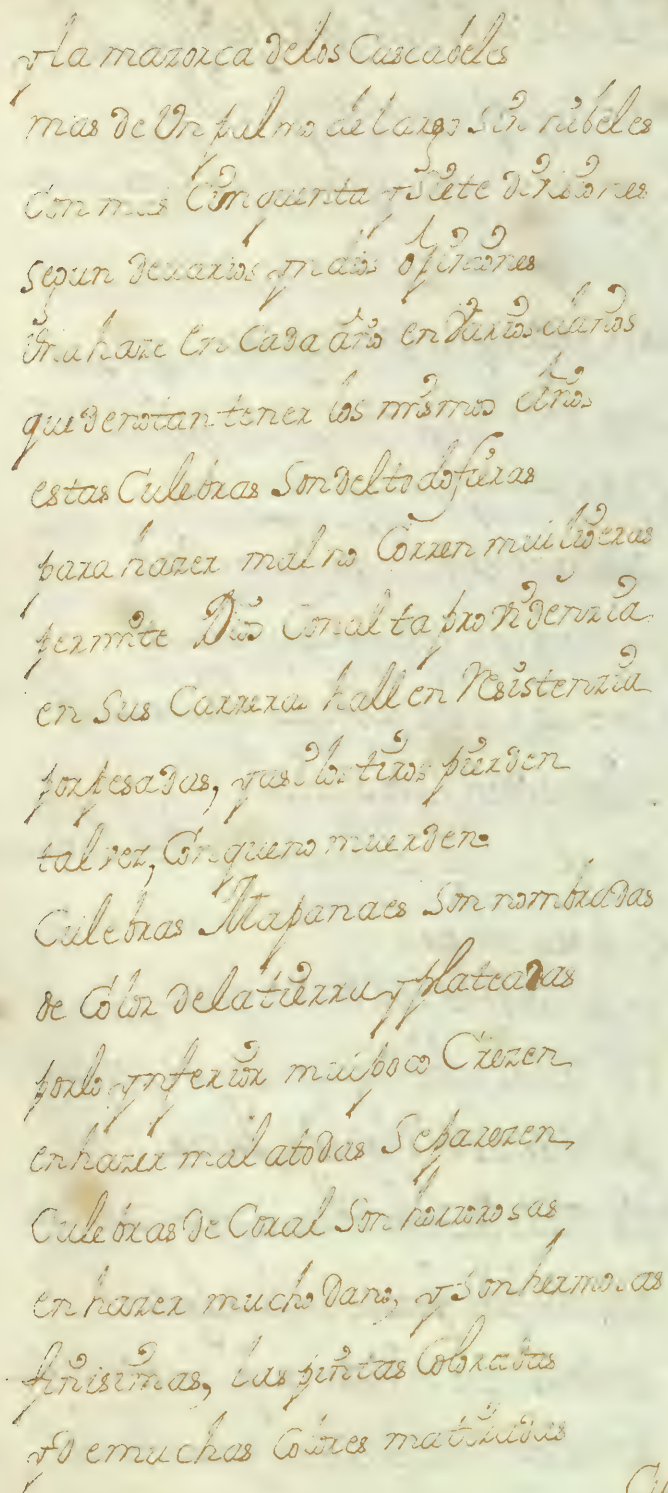 y la mazorca de los Cascabeles
mas de Un palmo de largo Sin nibeles
Con mas Cinquenta y Siete divisiones
Segun de varios opiniones
Una haze en Cada año en varios
que denotan tener los mismos años
estas Culebras Son del todo fieras
para hazer mal no Corren mui lixeras
permite Dios Con alta providenzia
en Sus Carrera hallen Resistenzia
por pesadas, y asi los tiros pierden
tal vez, Con que no muerden.
Culebras Mapanaes Son nombradas
de Color de la tierra y plateadas
por lo ynferior mui poco Crezen
en hazer mal a todas Se parezen
Culebras de Coral Son horrorosas
en hazer mucho dano, y Son hermosas
finisimas, las pintas Coloradas
y de muchas Colores matizadas
Cu